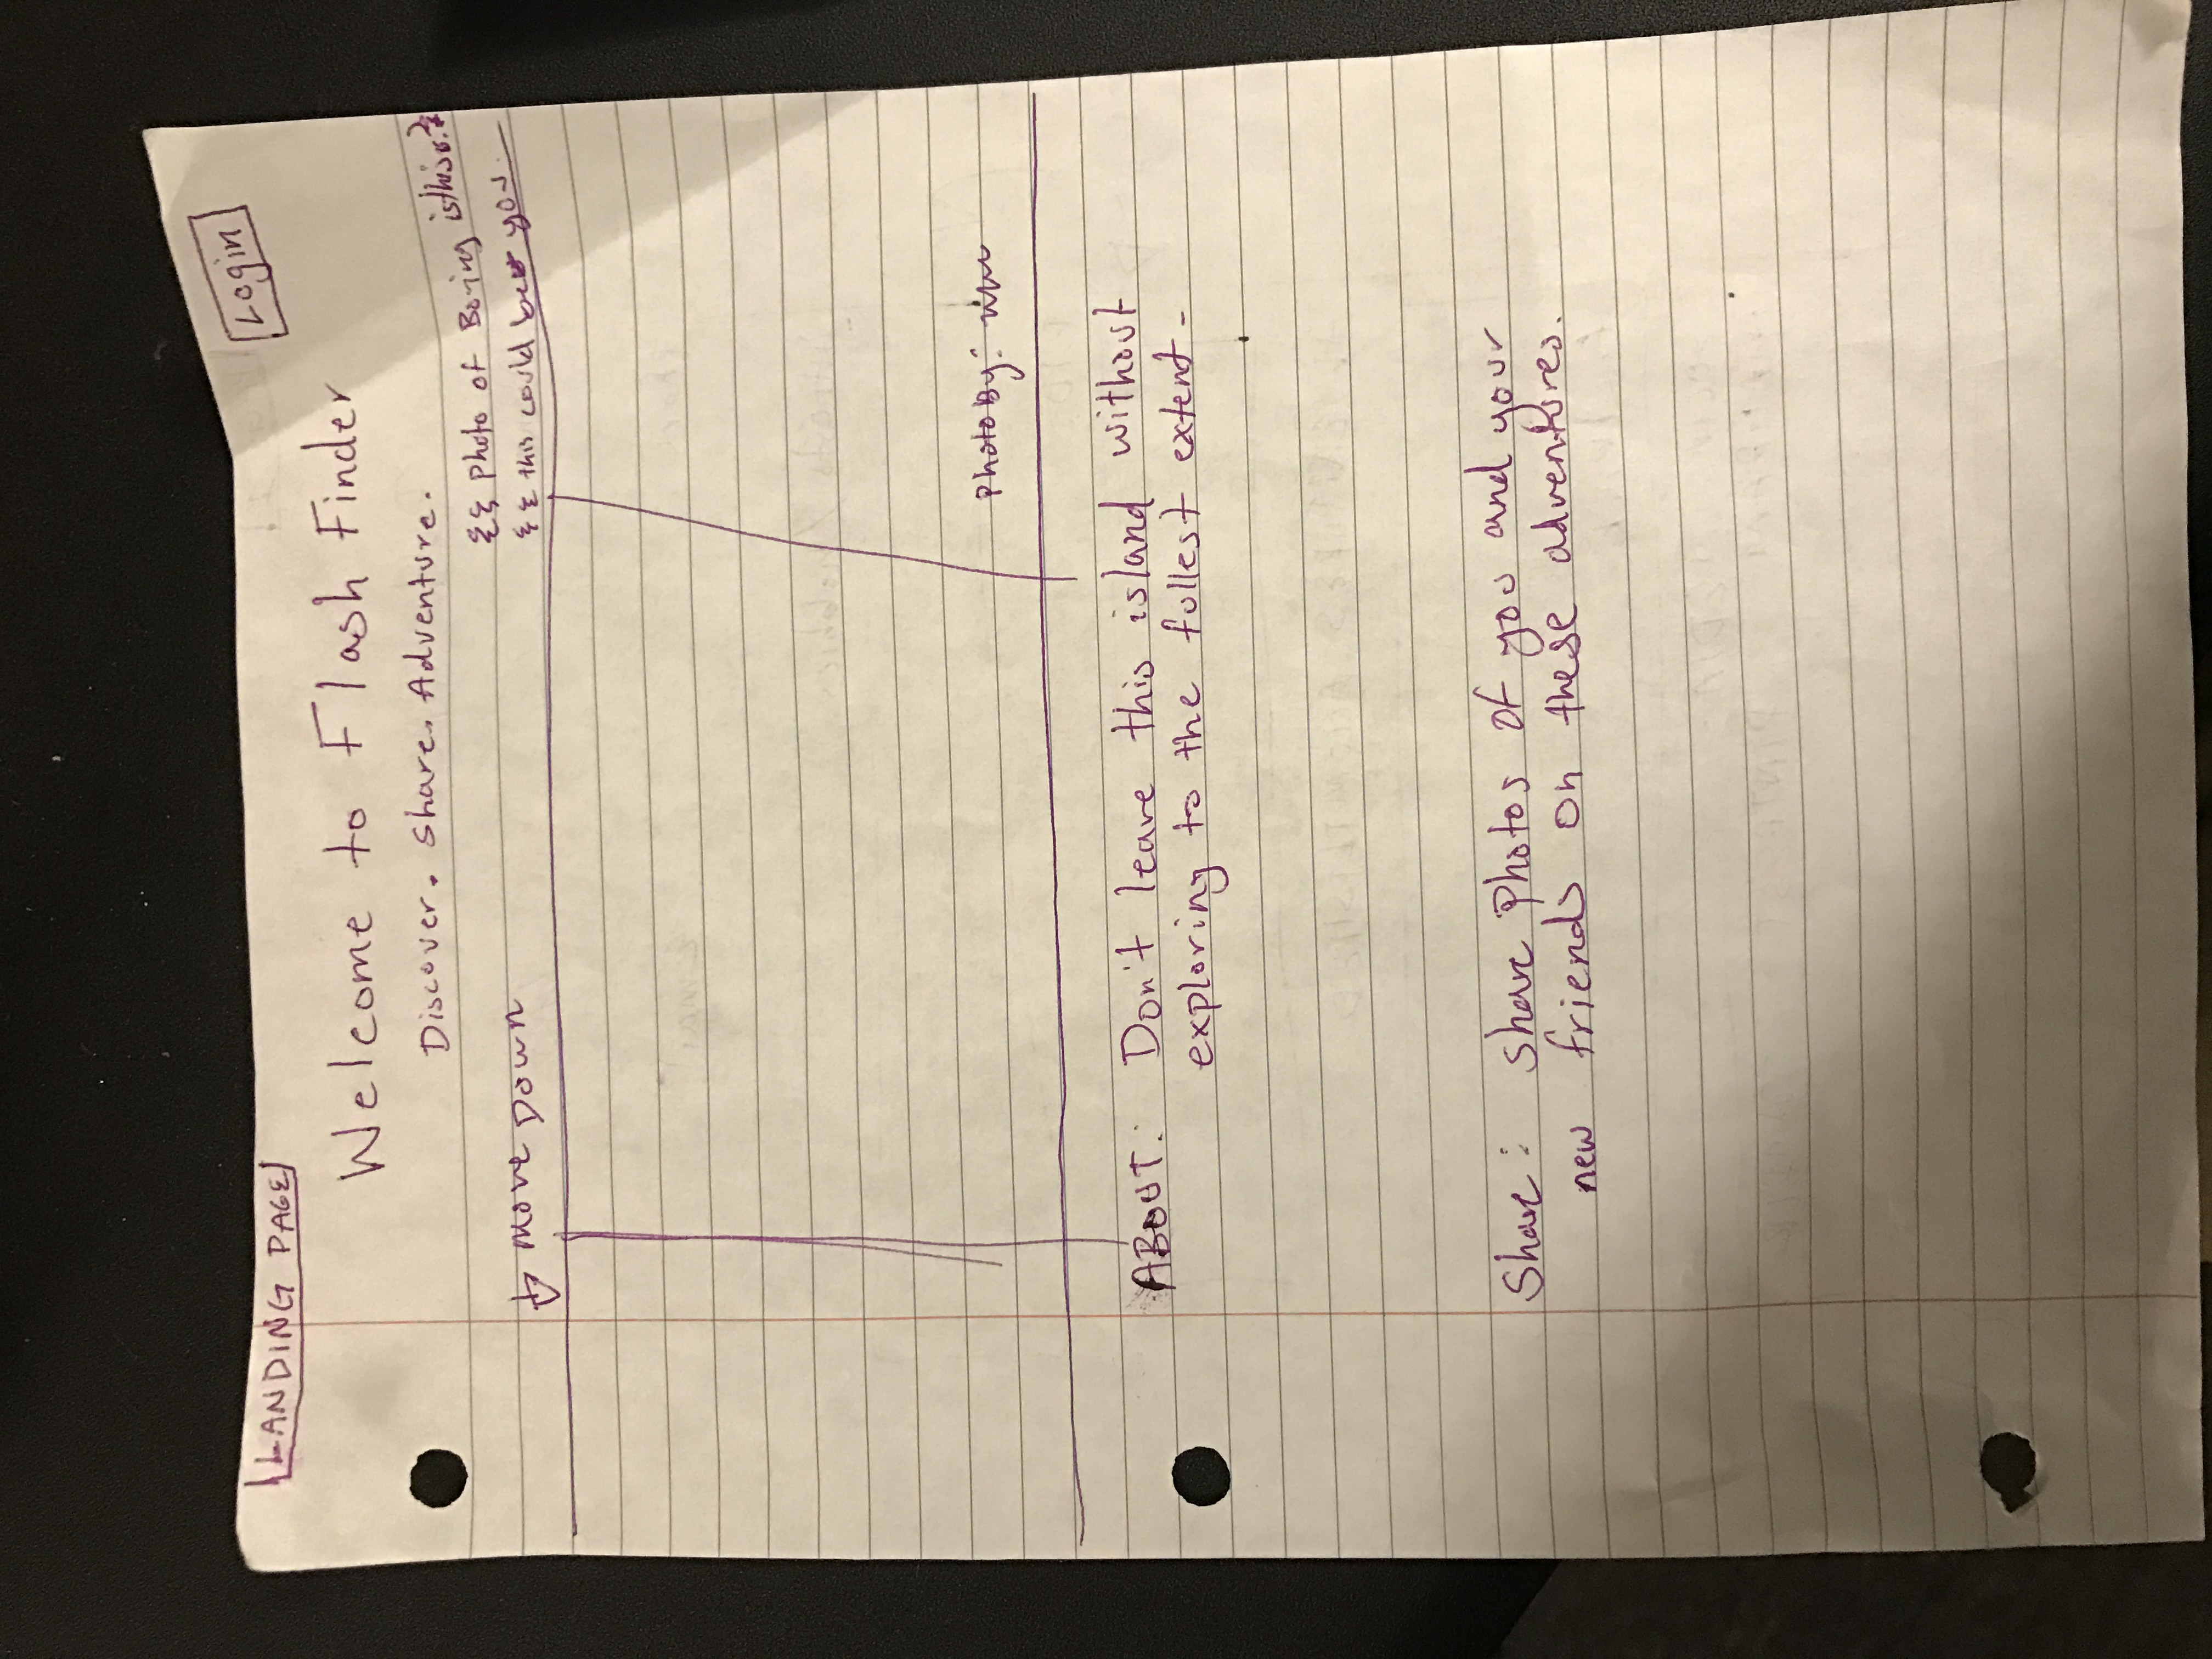 LANDING PAGE
Login
Welcome to Flash Finder
Discover. Share. Adventure.
Photo of
this could be you
Move Down
Photo By:
ABOUT: Don't leave this island without
exploring to the fullest extent.
Share: Share Photos of you and your
new friends on these adventures.